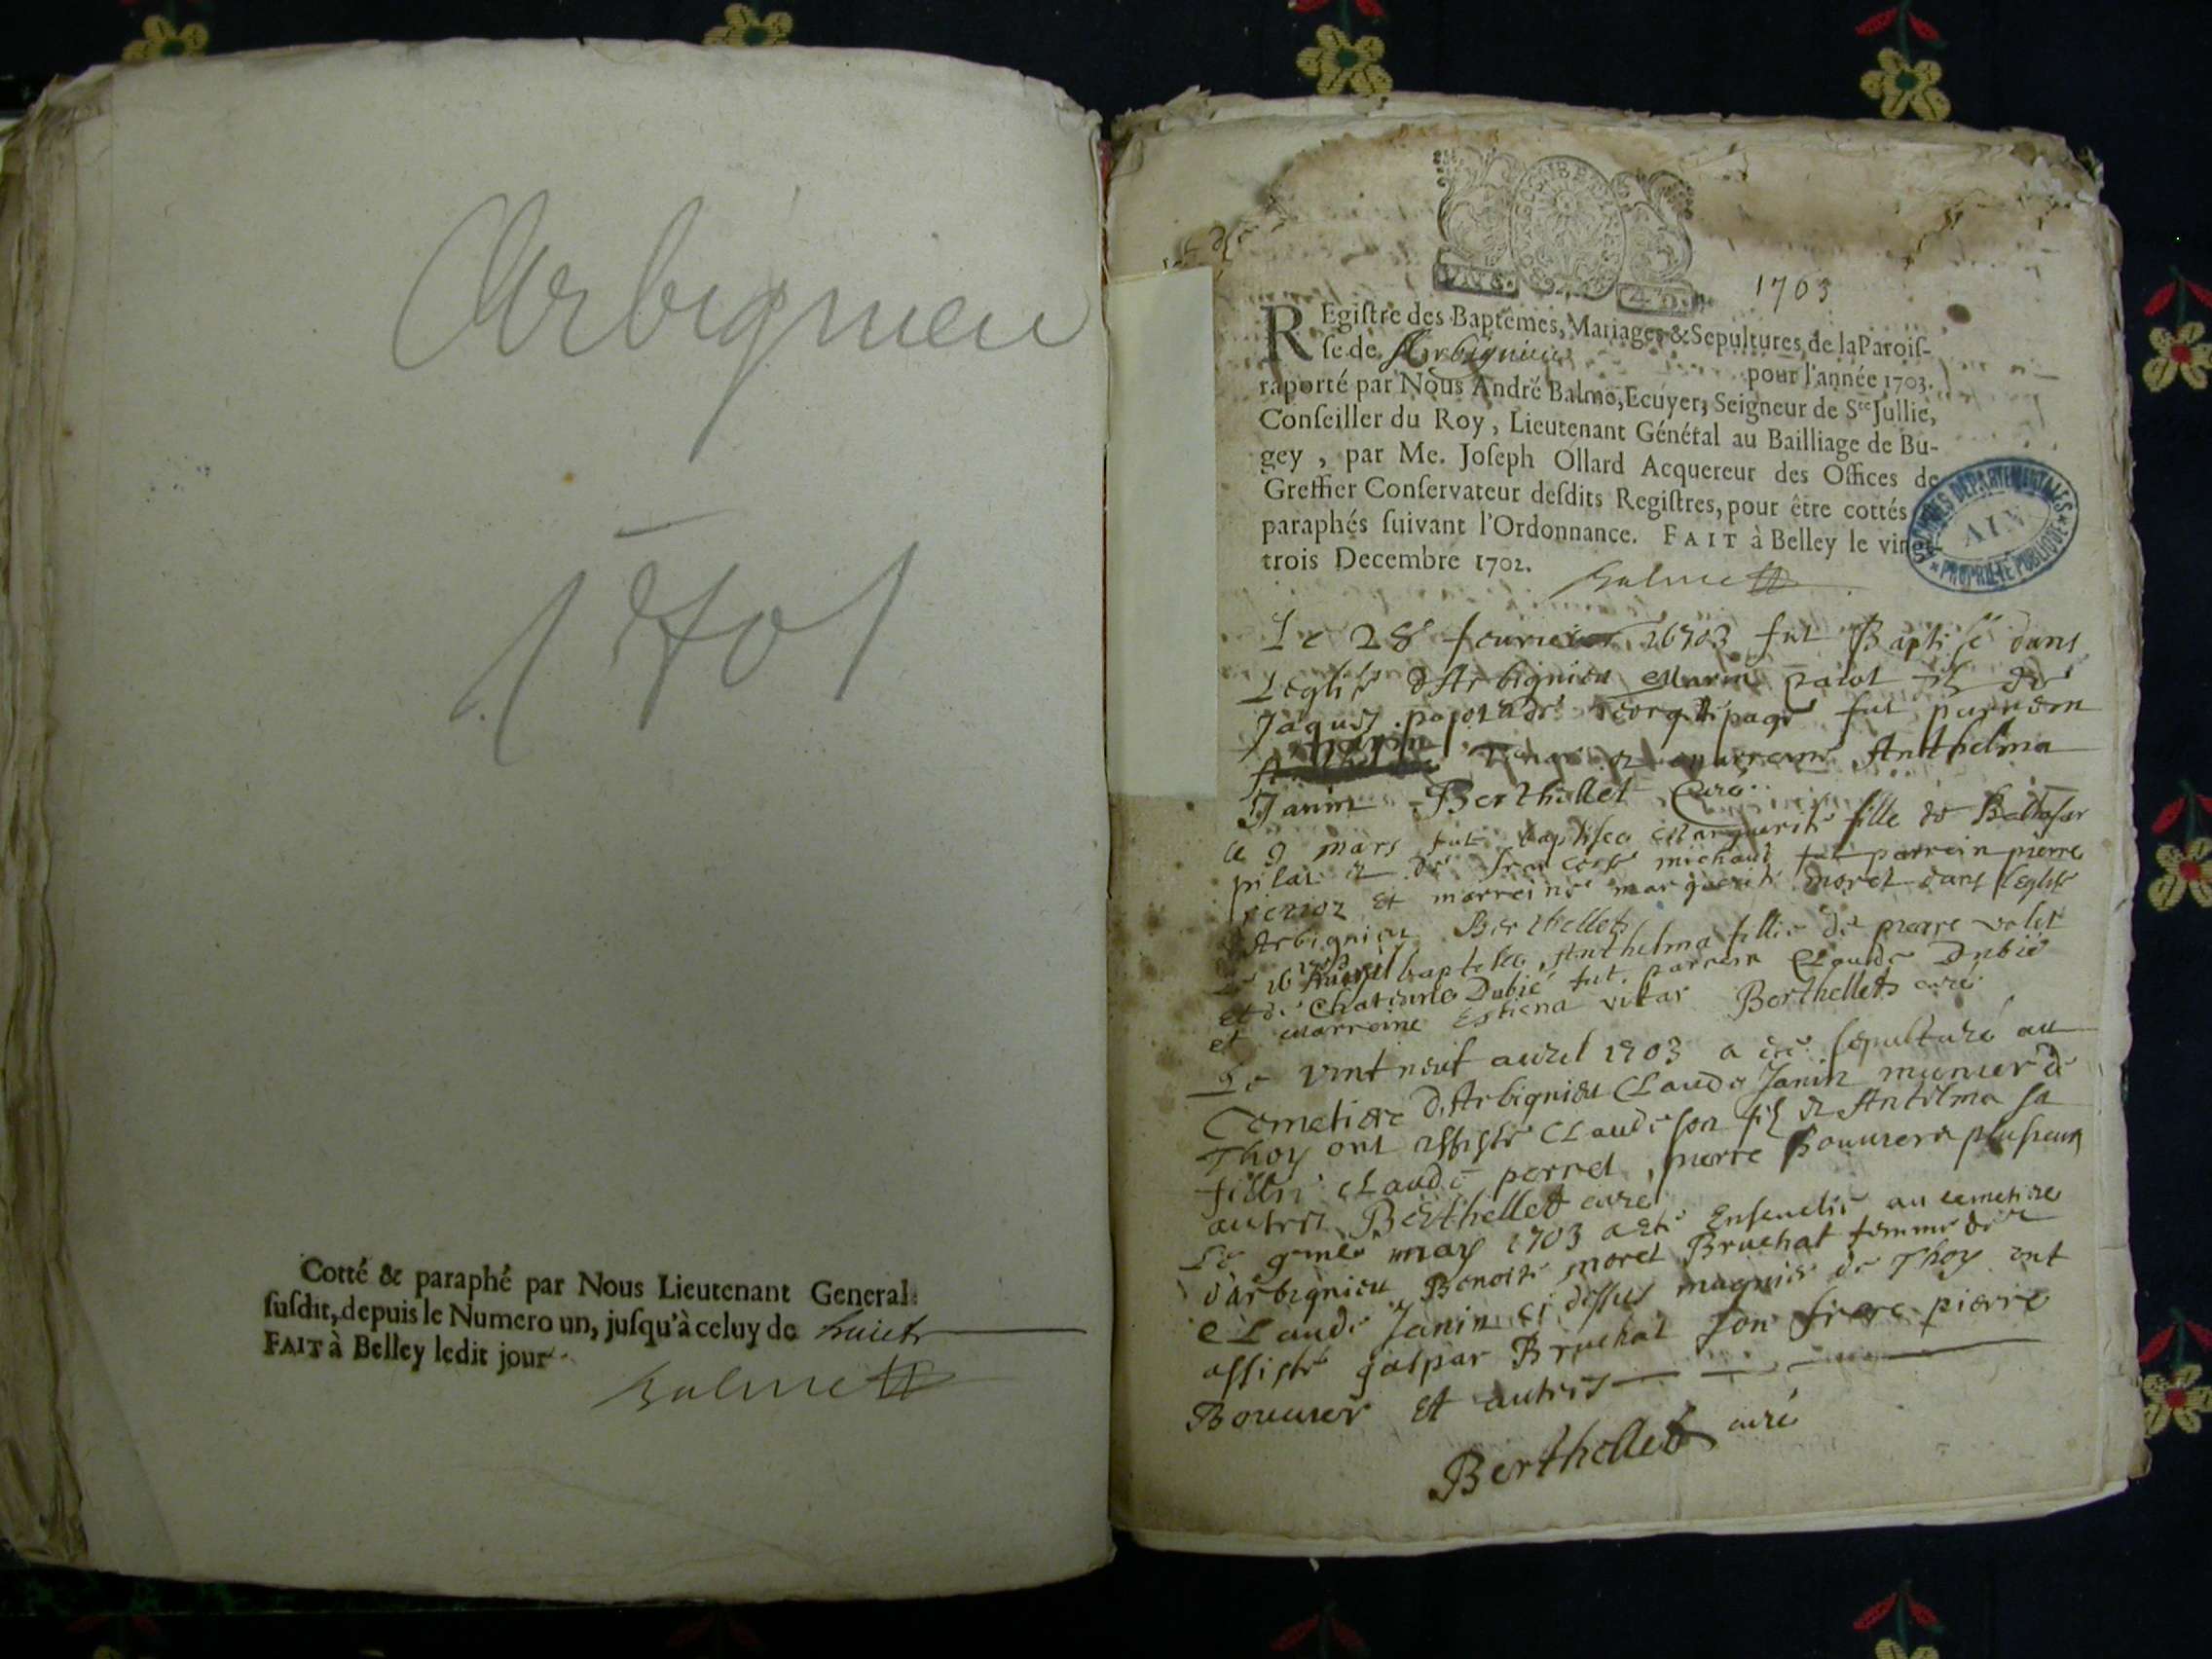 Arbignieu
1701
Cotté & paraphé par Nous Lieutenant General
ſuſdit, depuis le Numero un, juſqu'à celuy de huict
FAIT à Belley ledit jour
Balme
GEN. 4 D.
1703
REgiſtre des Baptêmes, Mariages & Sepultures, de la Paroiſ-
ſe de Arbignieu pour l'année 1703.
raporté par Nous André Balme, Ecuyer, Seigneur de Ste Jullie,
Conſeiller du Roy, Lieutenant Général au Bailliage de Bu-
gey, par Me. Joſeph Ollard Acquereur des Offices de
Greffier Conſervateur deſdits Regiſtres, pour être cottés
paraphés ſuivant l'Ordonnance. FAIT à Belley le vingt-
trois Decembre 1702.
ARCHIVES DEPARTEMENTALES
AIN
PROPRIETE PUBLIQUE
Balme
Le 28 feurier 1703 fut Baptisé dans
L'eglise d'Arbignieu paiot fils de
Jaques fut parrein
et marreine Anthelma
Janin Berthellet Curé
le 9 mars fut baptisea Marguerite fille de Baltasar
pilat et de francoise michaut fut parrein pierre
et marreine marguerite moret dans l'eglise
d'Arbignieu Berthellet
Le 16 baptisea Anthelma fillie de pierre volet
et de Dubié fut parrein Claude Dubié
et marreine Estiena vitar Berthellet curé
Le vint neuf auril 1703 a été sepulturé au
Cemetiere d'Arbignieu Claude Janin munier de
Thoy ont assisté Claude son fils et Antelma sa
fillie Claude perret, pierre Bouurer et plusieurs
autres Berthellet curé
Le 9me may 1703 a eté Enseuelie au cemetiere
d'arbignieu Benoite moret Bruchat femme de
Claude Janin ci dessus mugnier de Thoy ont
assisté gaspar Bruchat son frere pierre
Bouurer et autres
Berthellet curé